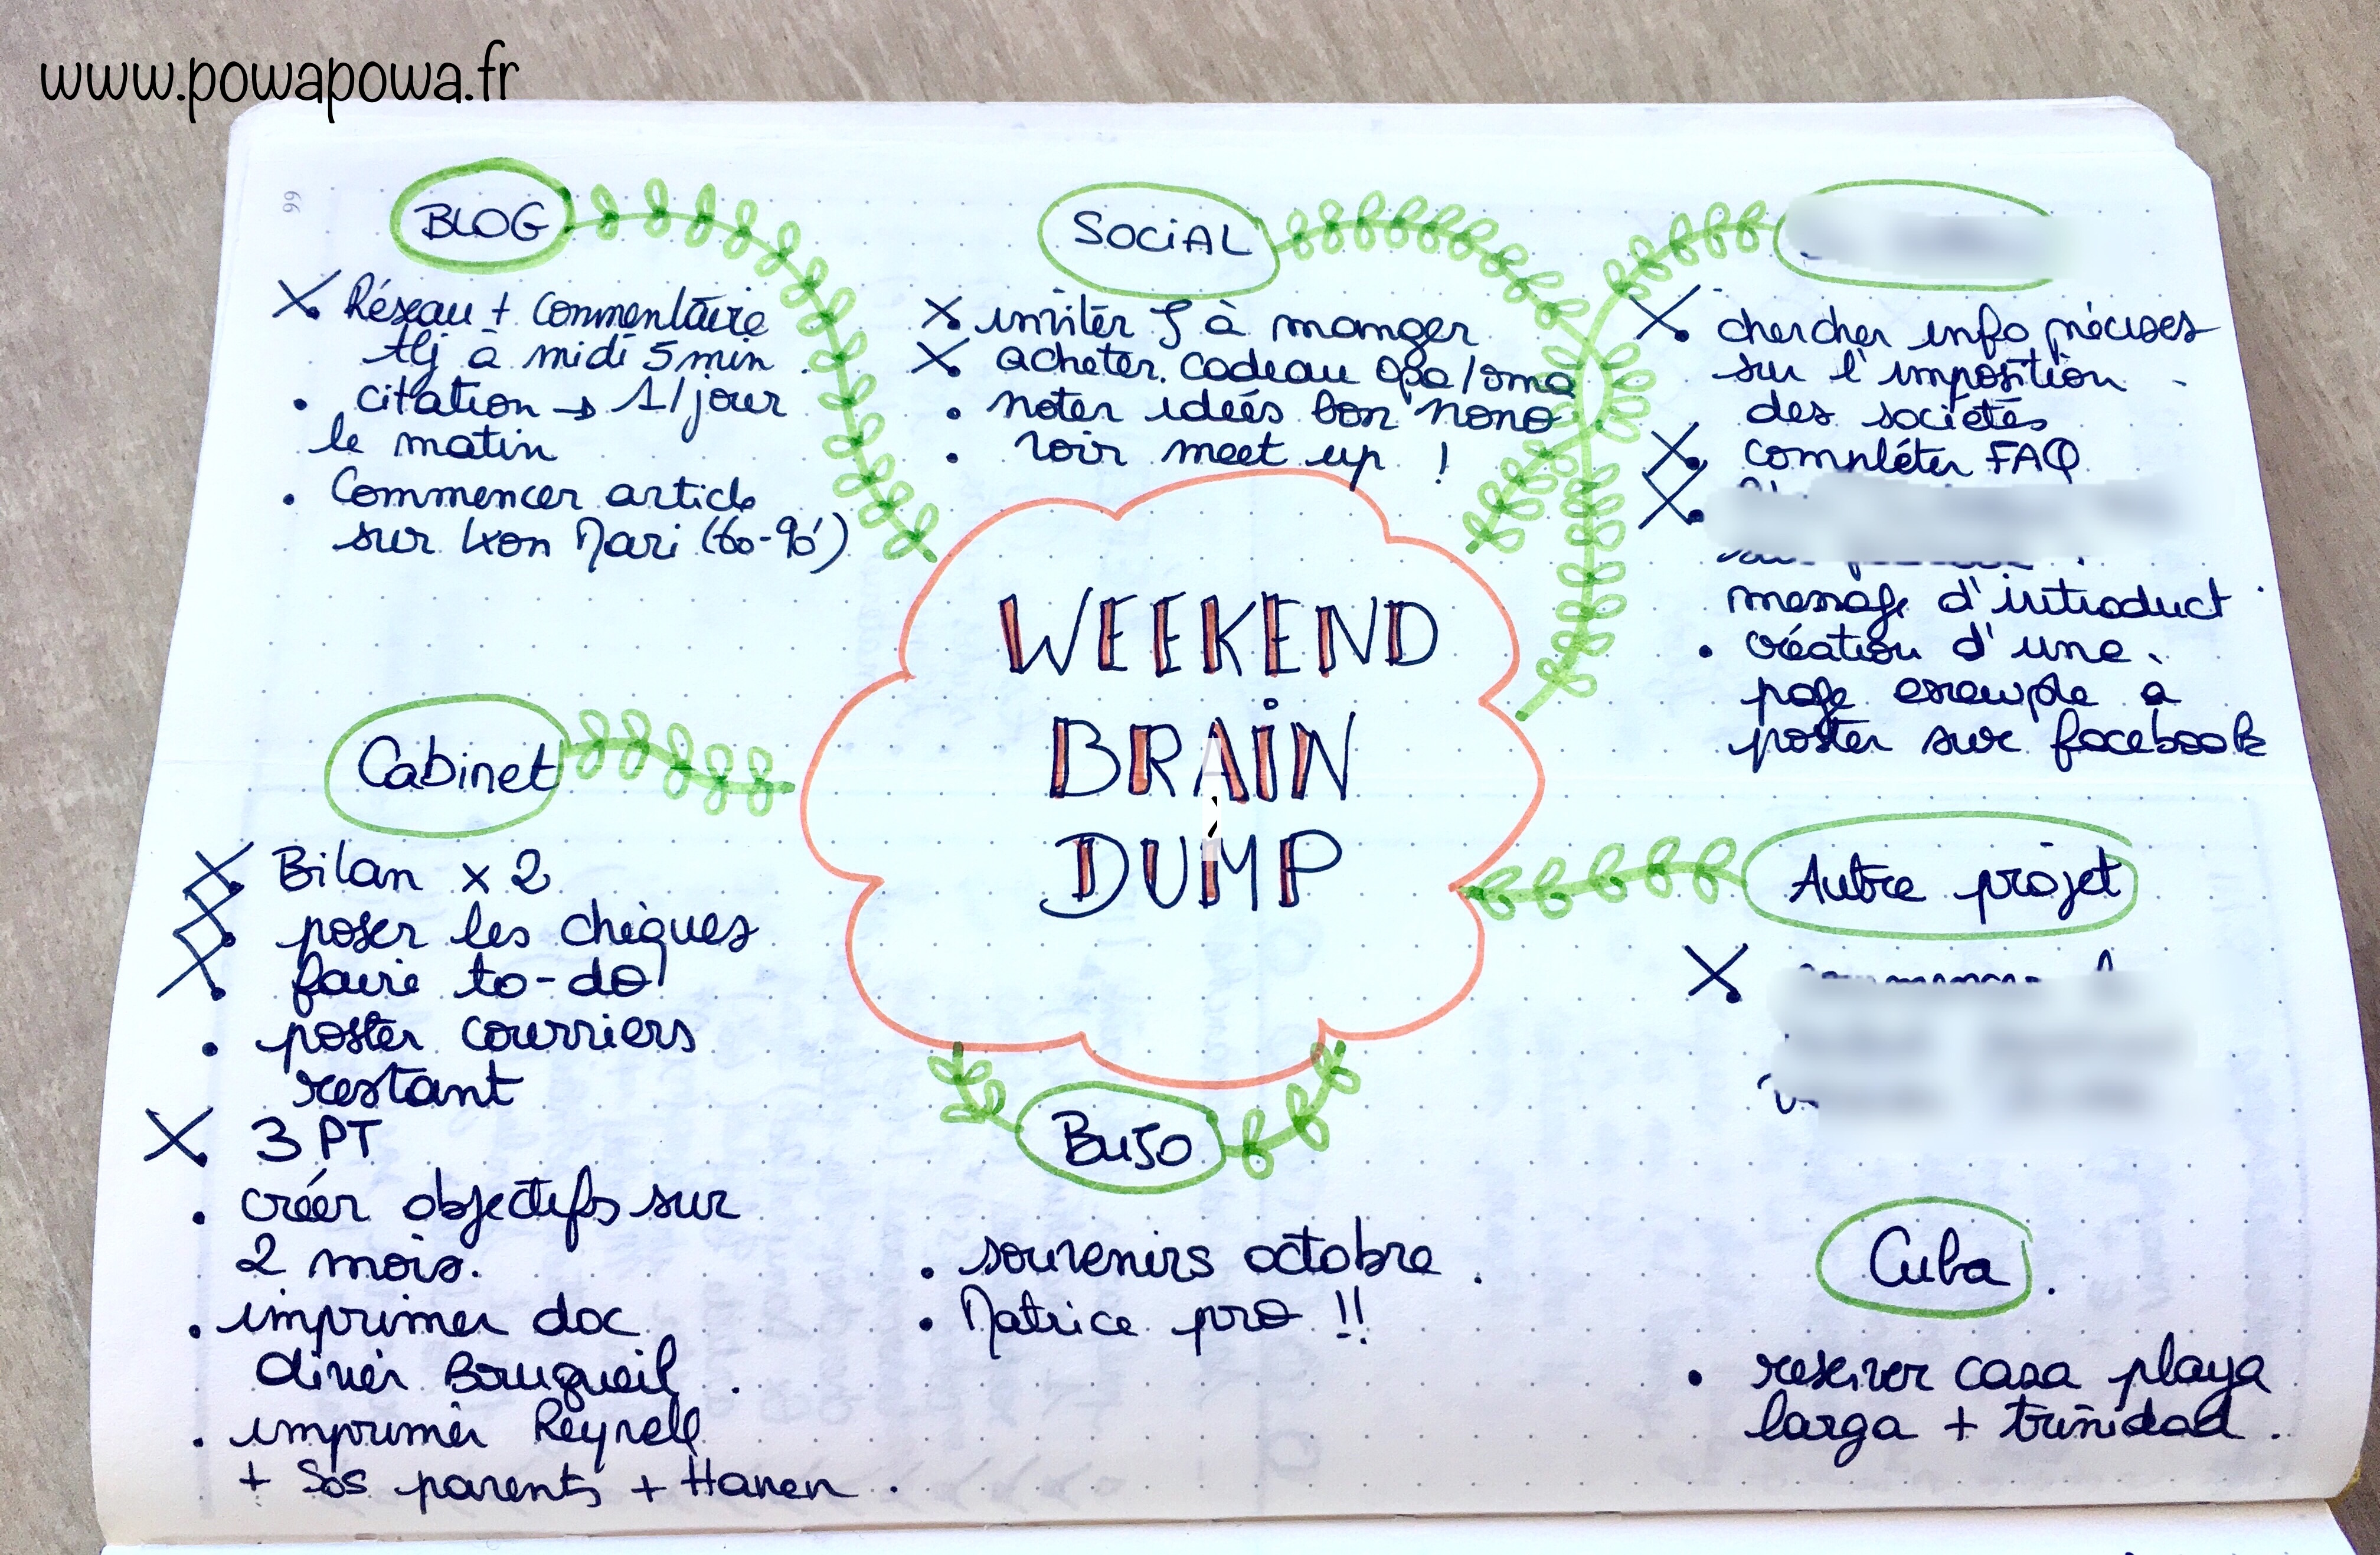 www.powapowa.fr
99
BLOG
Réseau + commentaire
tlj à midi 5min.
• citation → 1/jour
le matin
• Commencer article
sur Mari (60-90')
SOCiAL
inviter à manger
acheter cadeau opa/oma
• noter idées bon nono
• voir meet up !
chercher info précises
sur l'imposition
des sociétés
compléter FAQ
message d'introduct
• création d'une
page exemple à
poster sur facebook
WEEKEND
BRAiN
DUMP
Cabinet
Bilan x 2
poser les chèques
faire to-do
• poster courriers
restant
3 PT
• créer objectifs sur
2 mois.
• imprimer doc
olivier Bourgueil.
• imprimer Reynell
+ SOS parents + Hanen.
Autre projet
BuJo
• souvenirs octobre.
• Matrice pro !!
Cuba.
• reserver casa playa
larga + trinidad.